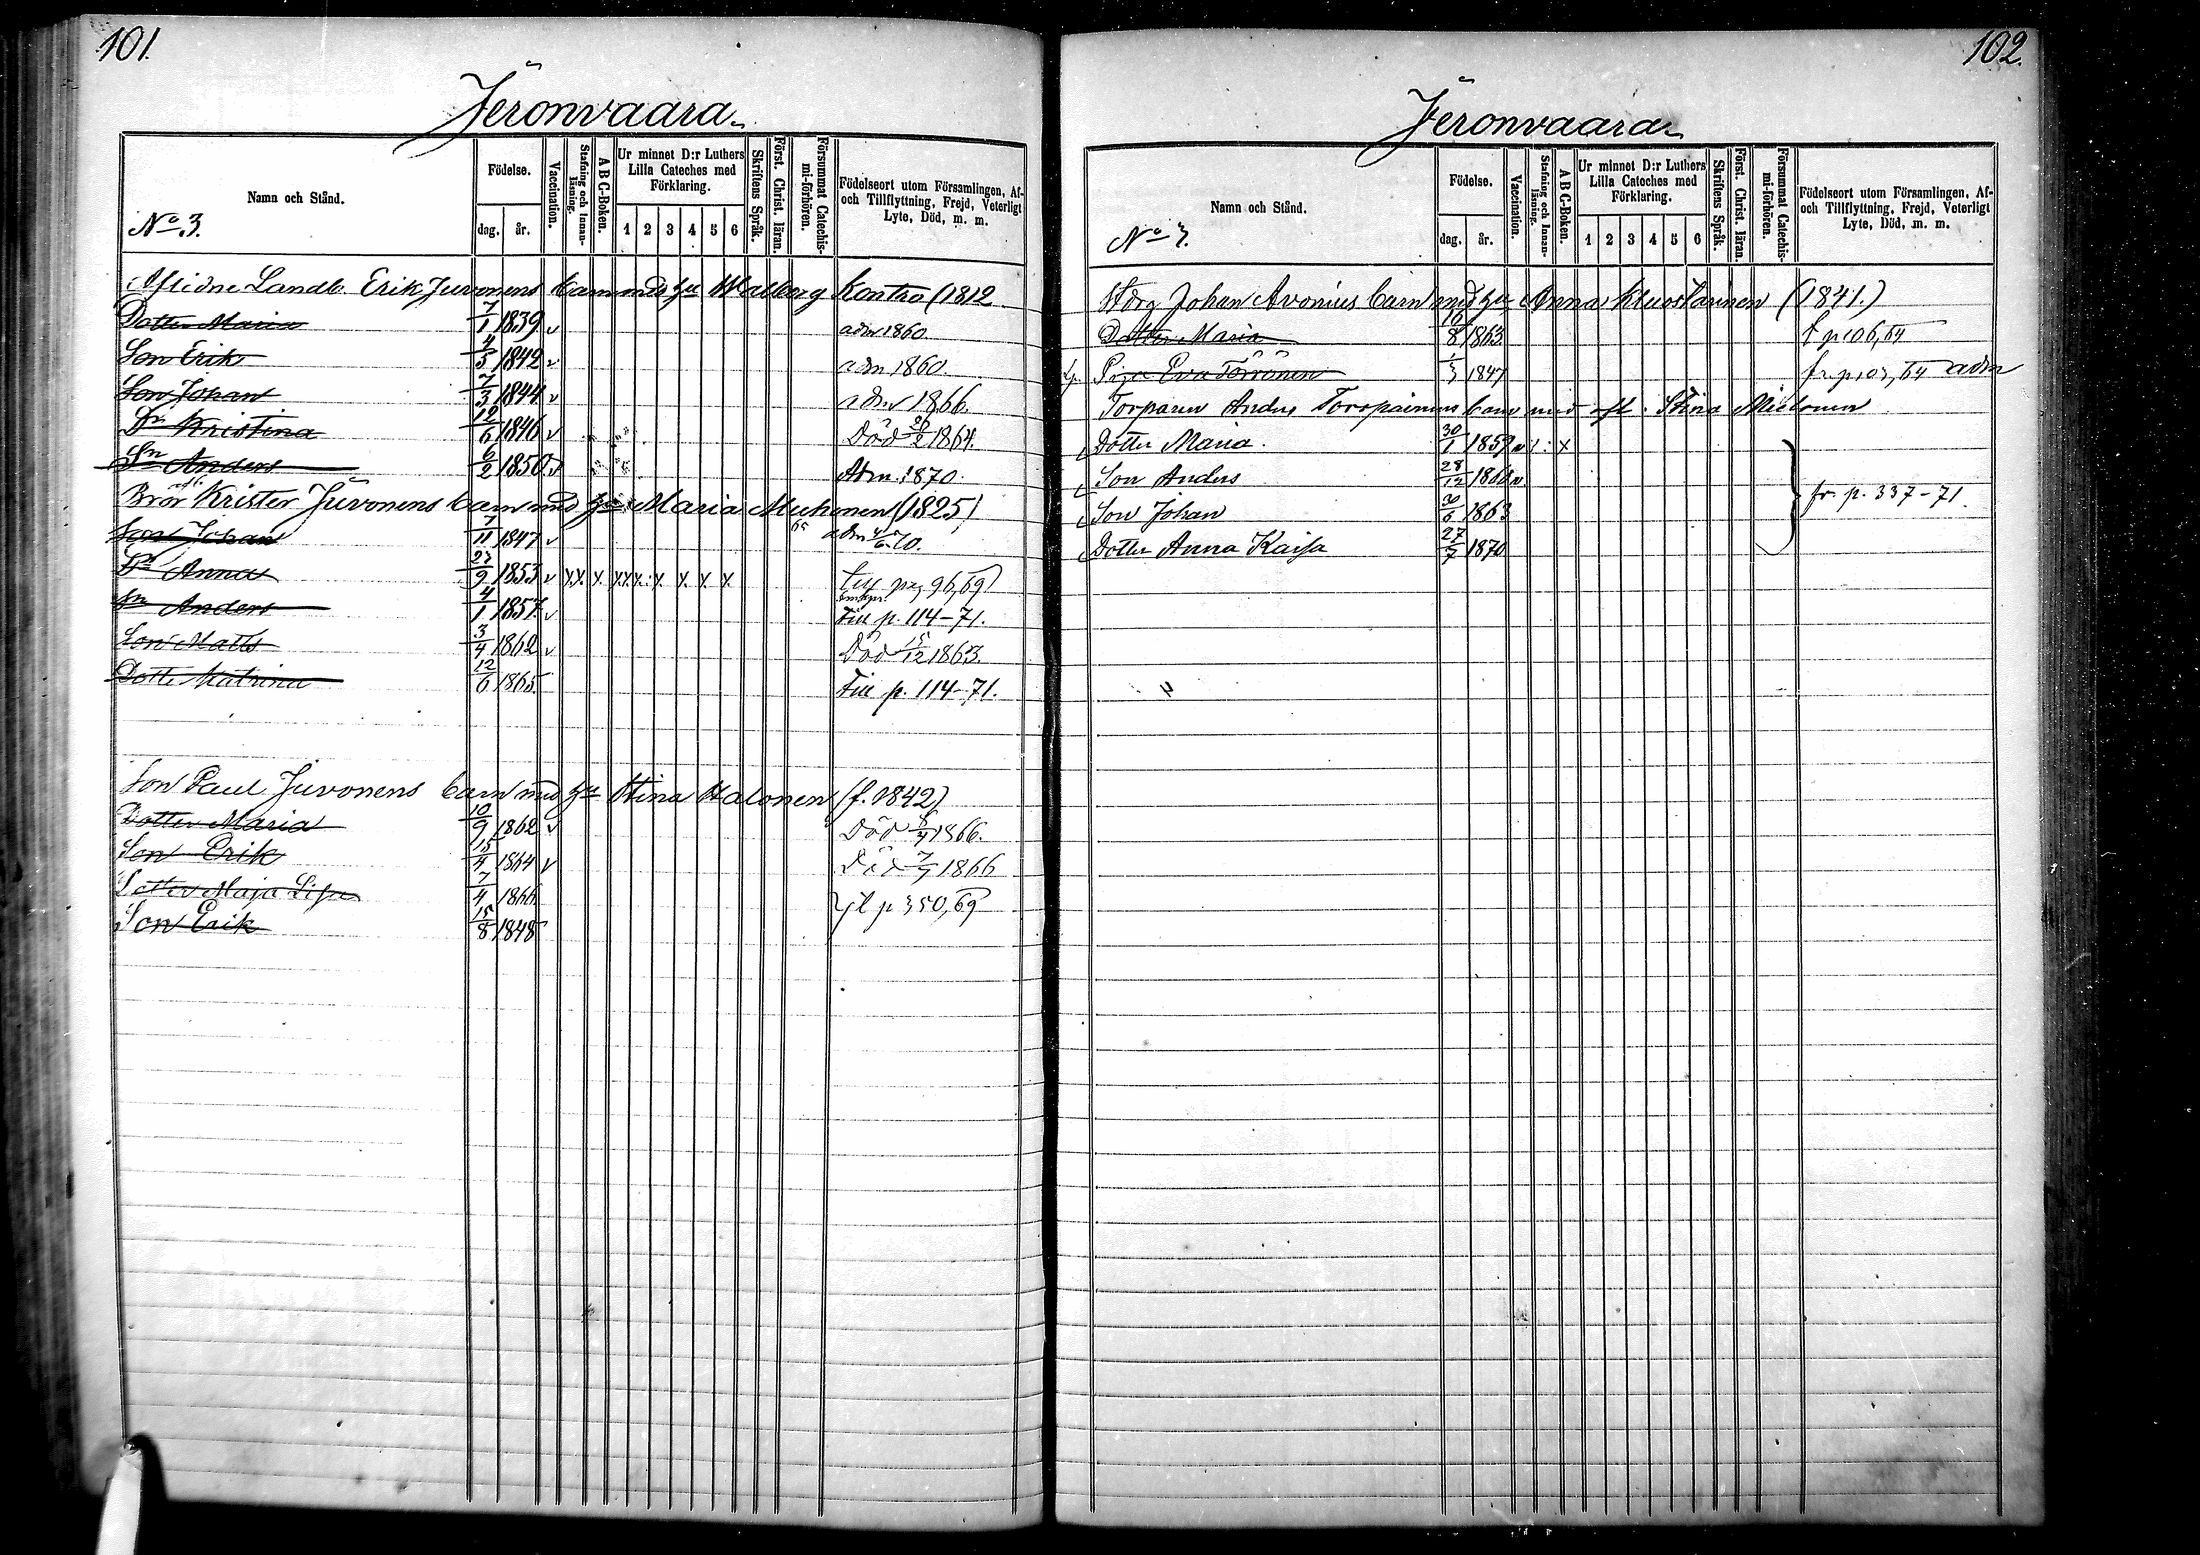 101.
Jeronvaara
Namn och Stånd.
No 3.
Födelse.
dag.
år.
Vaccination.
Stafning och Innan-läsning.
A B C-Boken.
Ur minnet D:r Luthers Lilla Cateches med Förklaring.
1 2 3 4 5 6
Skriftens Språk.
Först. Christ. läran.
Försummat Catechis-mi-förhören.
Födelseort utom Församlingen, Af- och Tillflyttning, Frejd, Veterligt Lyte, Död, m. m.
Aflidne Landb. Erik Juvonens barn med hu Walborg Kontra (1812
Dotter Maria 7/1 1839 v adm 1860.
Son Erik 4/5 1842 v adm 1860.
Son Johan 7/3 1844 v adm 1866.
Dr Kristina 12/6 1846 v Död 1864.
Sn Anders 6/2 1850 v Adm. 1870.
Bror Krister Juvonens barn med hu Maria Muhonen (1825)
Son Johan 7/11 1847 v adm 70.
Dr Anna 27/9 1853 v x x x x x x x x x x till pag 96, 69
Sn Anders 4/1 1857 v Till p. 114-71.
Son Matts 3/4 1862 v Död 15/12 1863.
Dotter Katrina 12/6 1865 Till p. 114-71.
Son Paul Juvonens barn med hu Stina Halonen (f. 1842)
Dotter Maria 10/9 1862 v Död 1866.
Son Erik 15/4 1864 v Död 1866
Dotter Maja Lisa 7/4 1866
Son Erik 15/8 1848 p 350, 69
102.
Jeronvaara
Namn och Stånd.
No
Födelse.
dag.
år.
Vaccination.
Stafning och Innan-läsning.
A B C-Boken.
Ur minnet D:r Luthers Lilla Cateches med Förklaring.
1 2 3 4 5 6
Skriftens Språk.
Först. Christ. läran.
Försummat Catechis-mi-förhören.
Födelseort utom Församlingen, Af- och Tillflyttning, Frejd, Veterligt Lyte, Död, m. m.
Johan Avonius barn med hu Anna (1841.)
Dotter Maria 1863 p 106, 64
Piga Eva Törrönen 1847 fr p 64 adm
Torparen Anders Toropainens barn med afl. Stina
Dotter Maria. 30/1 1859 v x
Son Anders 28/12 1860 v
Son Johan 1863 fr p. 337-71
Dotter Anna Kaisa 27/7 1870